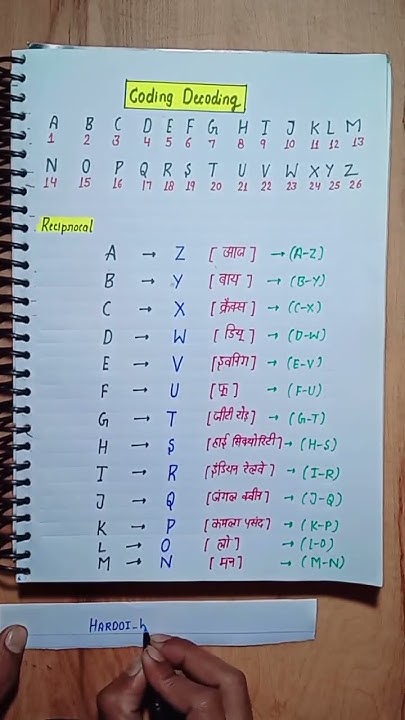 Coding Decoding
A B C D E F G H I J K L M
1 2 3 4 5 6 7 8 9 10 11 12 13
N O P Q R S T U V W X Y Z
14 15 16 17 18 19 20 21 22 23 24 25 26
Reciprocal
A → Z [आज] → (A-Z)
B → Y [बाय] → (B-Y)
C → X [क्रैक्स] → (C-X)
D → W [डियू] → (D-W)
E → V [इवनिंग] → (E-V)
F → U [फू] → (F-U)
G → T [जीटी रोड़] → (G-T)
H → S [हाई सिक्योरिटी] → (H-S)
I → R [इंडियन रेलवे] → (I-R)
J → Q [जंगल क्वीन] → (J-Q)
K → P [कमला पसंद] → (K-P)
L → O [लो] → (L-O)
M → N [मन] → (M-N)
HARDOI-